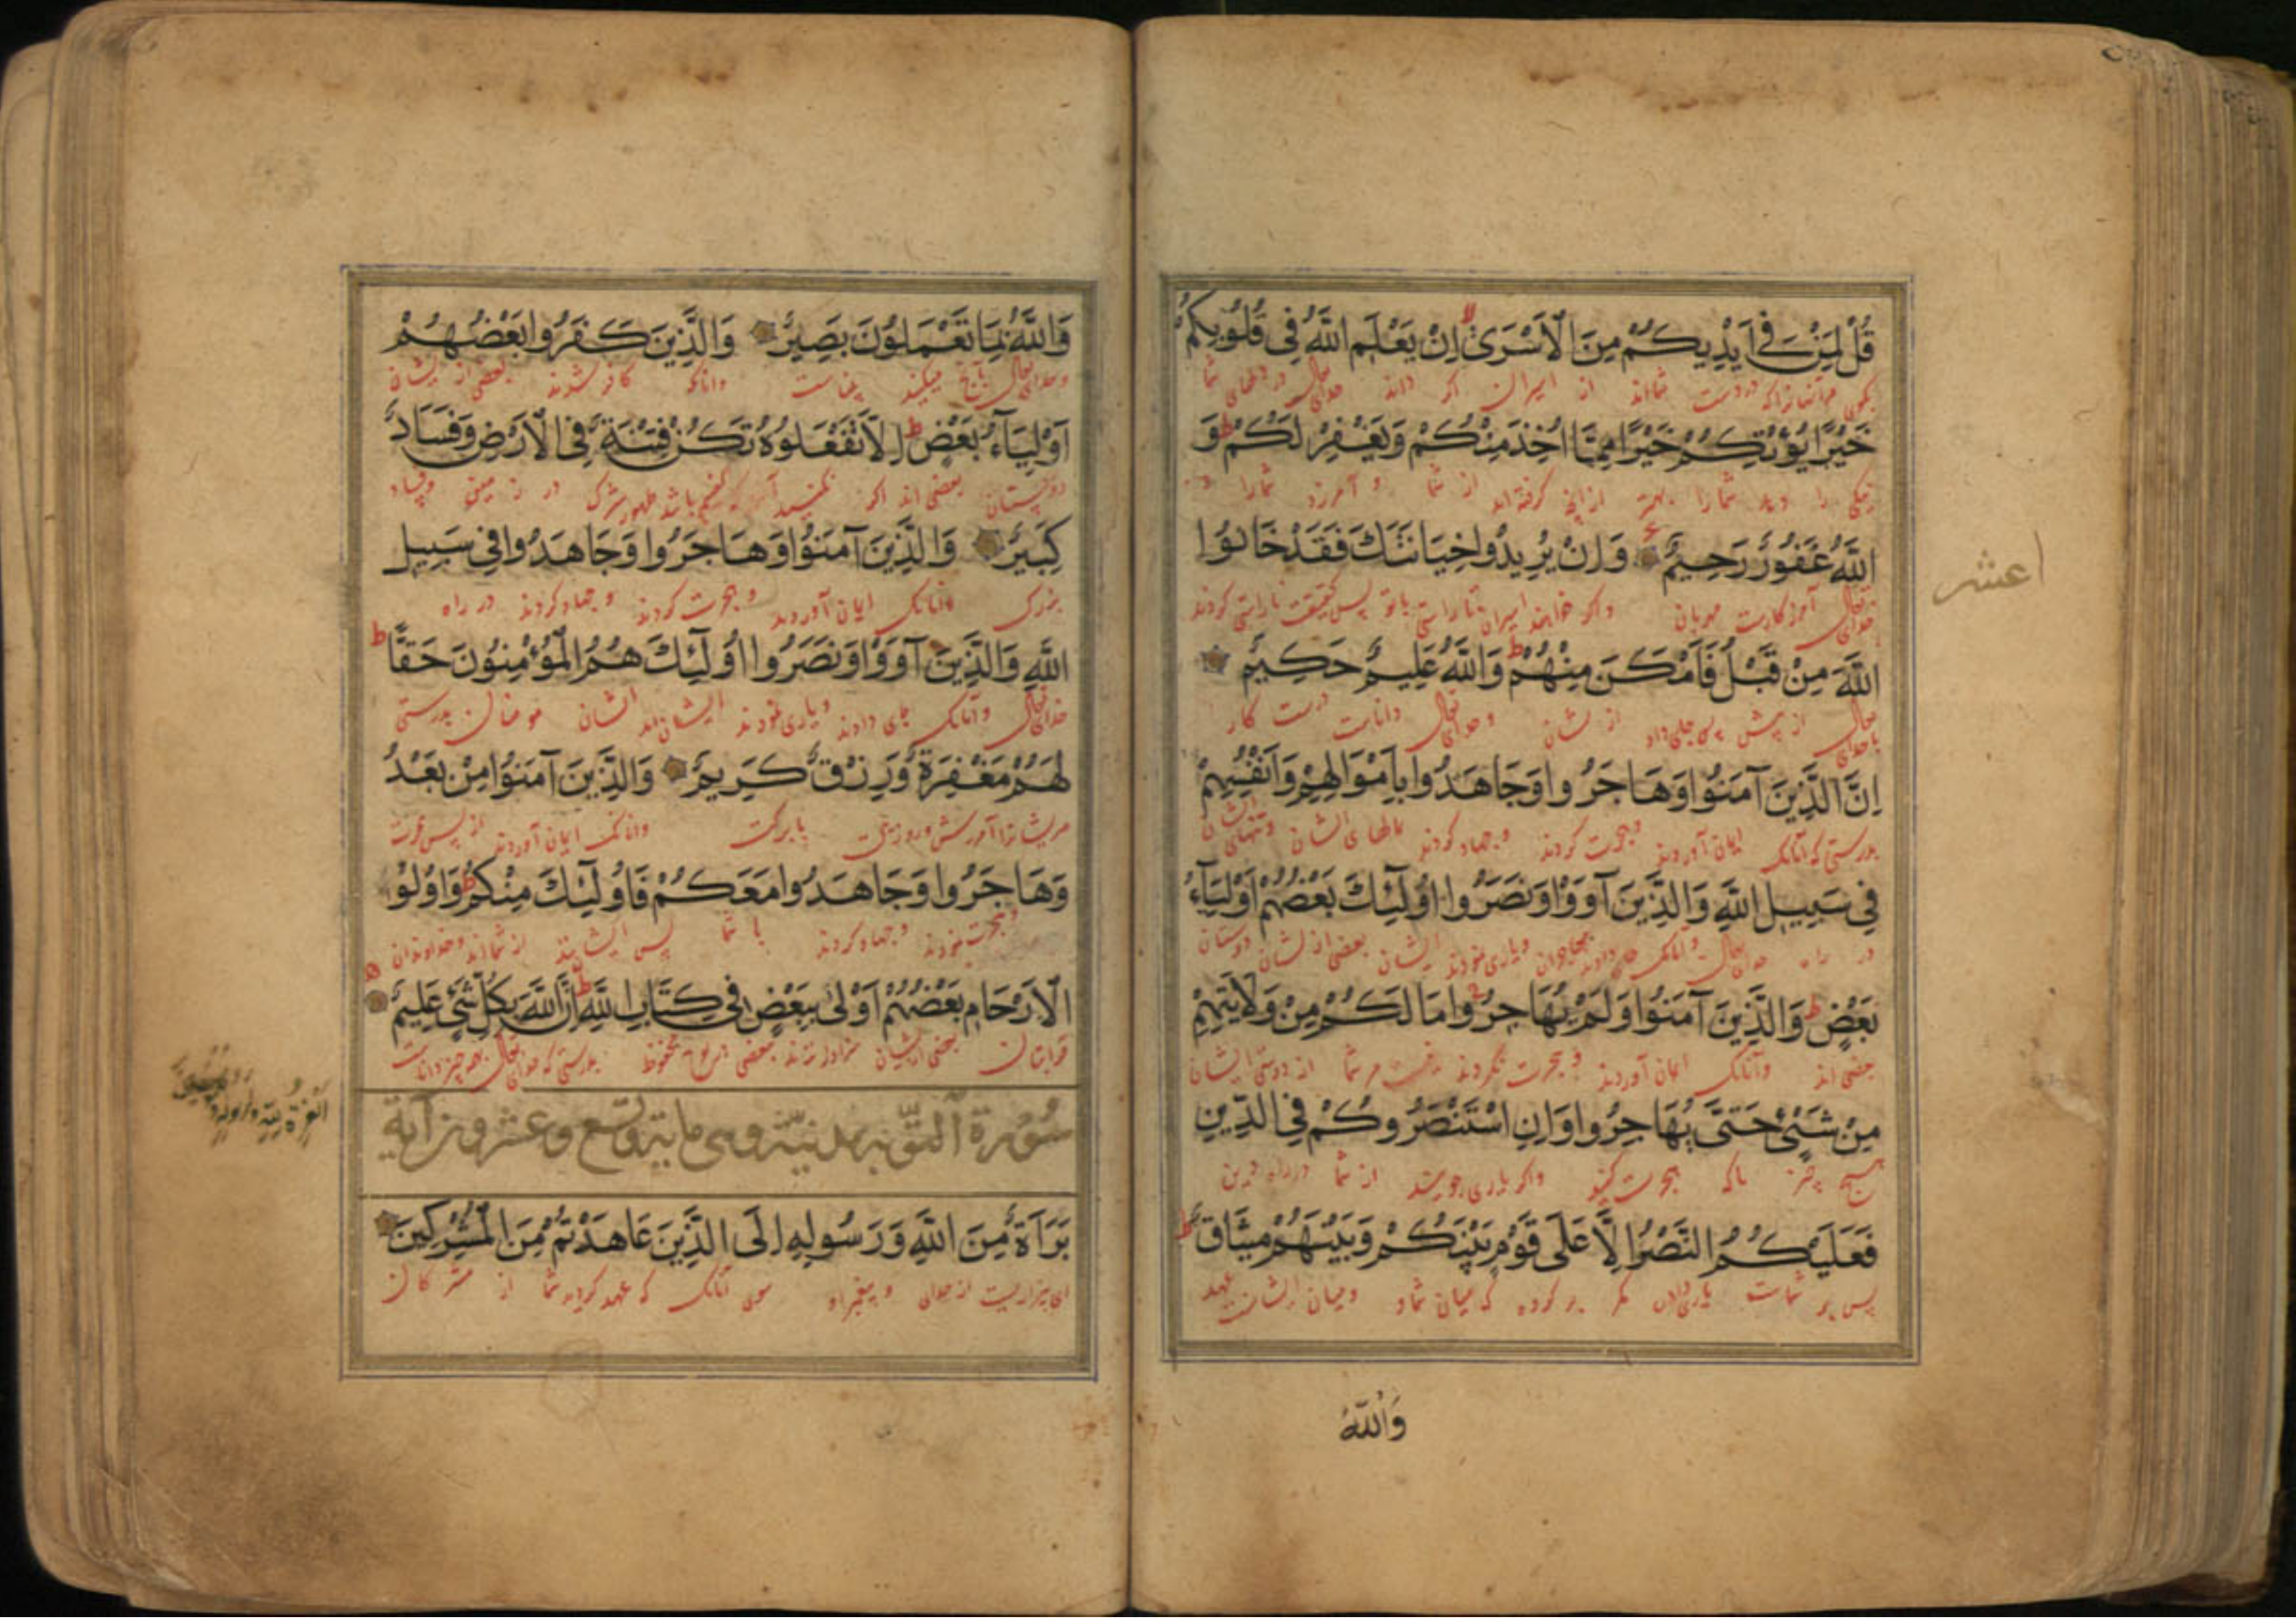 قُلْ لِمَنْ فِي اَيْدِيكُمْ مِنَ الْاَسْرَىٰ اِنْ يَعْلَمِ اللَّهُ فِي قُلُوبِكُمْ
در دست شمااند از اسیران اکر داند خدای تعالی در دلهای شما
خَيْرًا يُؤْتِكُمْ خَيْرًا مِمَّا اُخِذَ مِنْكُمْ وَيَغْفِرْ لَكُمْ وَ
نیکی را دهد شمارا بهتر ازانچه کرفته اند از شما و آمرزد شمارا و
اللَّهُ غَفُورٌ رَحِيمٌ وَاِنْ يُرِيدُوا خِيَانَتَكَ فَقَدْ خَانُوا
خدای تعالی آمرزکارست مهربان واکر خواهند اسیران ناراستی باتو پس بحقیقت ناراستی کردند
اللَّهَ مِنْ قَبْلُ فَاَمْكَنَ مِنْهُمْ وَاللَّهُ عَلِيمٌ حَكِيمٌ
باخدای تعالی از پیش پس جای داد از ایشان وخدای تعالی داناست درست کار
اِنَّ الَّذِينَ آمَنُوا وَهَاجَرُوا وَجَاهَدُوا بِاَمْوَالِهِمْ وَاَنْفُسِهِمْ
بدرستی که آنانک ایمان آوردند وهجرت کردند وجهاد کردند بمالهای ایشان وتنهای ایشان
فِي سَبِيلِ اللَّهِ وَالَّذِينَ آوَوْا وَنَصَرُوا اُولَٓئِكَ بَعْضُهُمْ اَوْلِيَآءُ
در راه خدای تعالی وآنانک جای دادند مهاجران ویاری نمودند ایشان بعضی از ایشان دوستان
بَعْضٍ وَالَّذِينَ آمَنُوا وَلَمْ يُهَاجِرُوا مَا لَكُمْ مِنْ وَلَايَتِهِمْ
بعضی اند وآنانک ایمان آوردند وهجرت نکردند نیست مر شما از دوستی ایشان
مِنْ شَيْءٍ حَتَّىٰ يُهَاجِرُوا وَاِنِ اسْتَنْصَرُوكُمْ فِي الدِّينِ
هیچ چیز تاکه هجرت کنند واکر یاری جویند از شما در راه دین
فَعَلَيْكُمُ النَّصْرُ اِلَّا عَلَىٰ قَوْمٍ بَيْنَكُمْ وَبَيْنَهُمْ مِيثَاقٌ
پس بر شماست یاری دادن مکر بر کروه که میان شما و ومیان ایشانست عهد
وَاللَّهُ
اعشر
وَاللَّهُ بِمَا تَعْمَلُونَ بَصِيرٌ وَالَّذِينَ كَفَرُوا بَعْضُهُمْ
وخدای تعالی بآنچ میکنید بیناست وآنانکه کافر شدند بعضی از ایشان
اَوْلِيَآءُ بَعْضٍ اِلَّا تَفْعَلُوهُ تَكُنْ فِتْنَةٌ فِي الْاَرْضِ وَفَسَادٌ
دوستان بعضی اند اکر نکنید باشد ظهور شرک در زمین وفساد
كَبِيرٌ وَالَّذِينَ آمَنُوا وَهَاجَرُوا وَجَاهَدُوا فِي سَبِيلِ
بزرک وآنانک ایمان آوردند وهجرت کردند وجهاد کردند در راه
اللَّهِ وَالَّذِينَ آوَوْا وَنَصَرُوا اُولَٓئِكَ هُمُ الْمُؤْمِنُونَ حَقًّا
خدای تعالی وآنانک جای دادند ویاری نمودند ایشان اند ایشان مومنان بدرستی
لَهُمْ مَغْفِرَةٌ وَرِزْقٌ كَرِيمٌ وَالَّذِينَ آمَنُوا مِنْ بَعْدُ
مر ایشانرا آمرزش وروزی با برکت وآنانک ایمان آوردند از پس
وَهَاجَرُوا وَجَاهَدُوا مَعَكُمْ فَاُولَٓئِكَ مِنْكُمْ وَاُولُوا
وهجرت نمودند وجهاد کردند با شما پس ایشانند از شمااند وخداوندان
الْاَرْحَامِ بَعْضُهُمْ اَوْلَىٰ بِبَعْضٍ فِي كِتَابِ اللَّهِ اِنَّ اللَّهَ بِكُلِّ شَيْءٍ عَلِيمٌ
قرابتان بعضی ایشان سزاوارترند ببعضی در لوح محفوظ بدرستی که خدای تعالی بهمه چیز داناست
سُورَةُ التَّوْبَة مدنيّة وهي ماية وتسع وعشرون آية
بَرَآءَةٌ مِنَ اللَّهِ وَرَسُولِهِ اِلَى الَّذِينَ عَاهَدْتُمْ مِنَ الْمُشْرِكِينَ
این بیزاریست از خدای و پیغمبر او سوی آنانک که عهد کردید شما از مشرکان